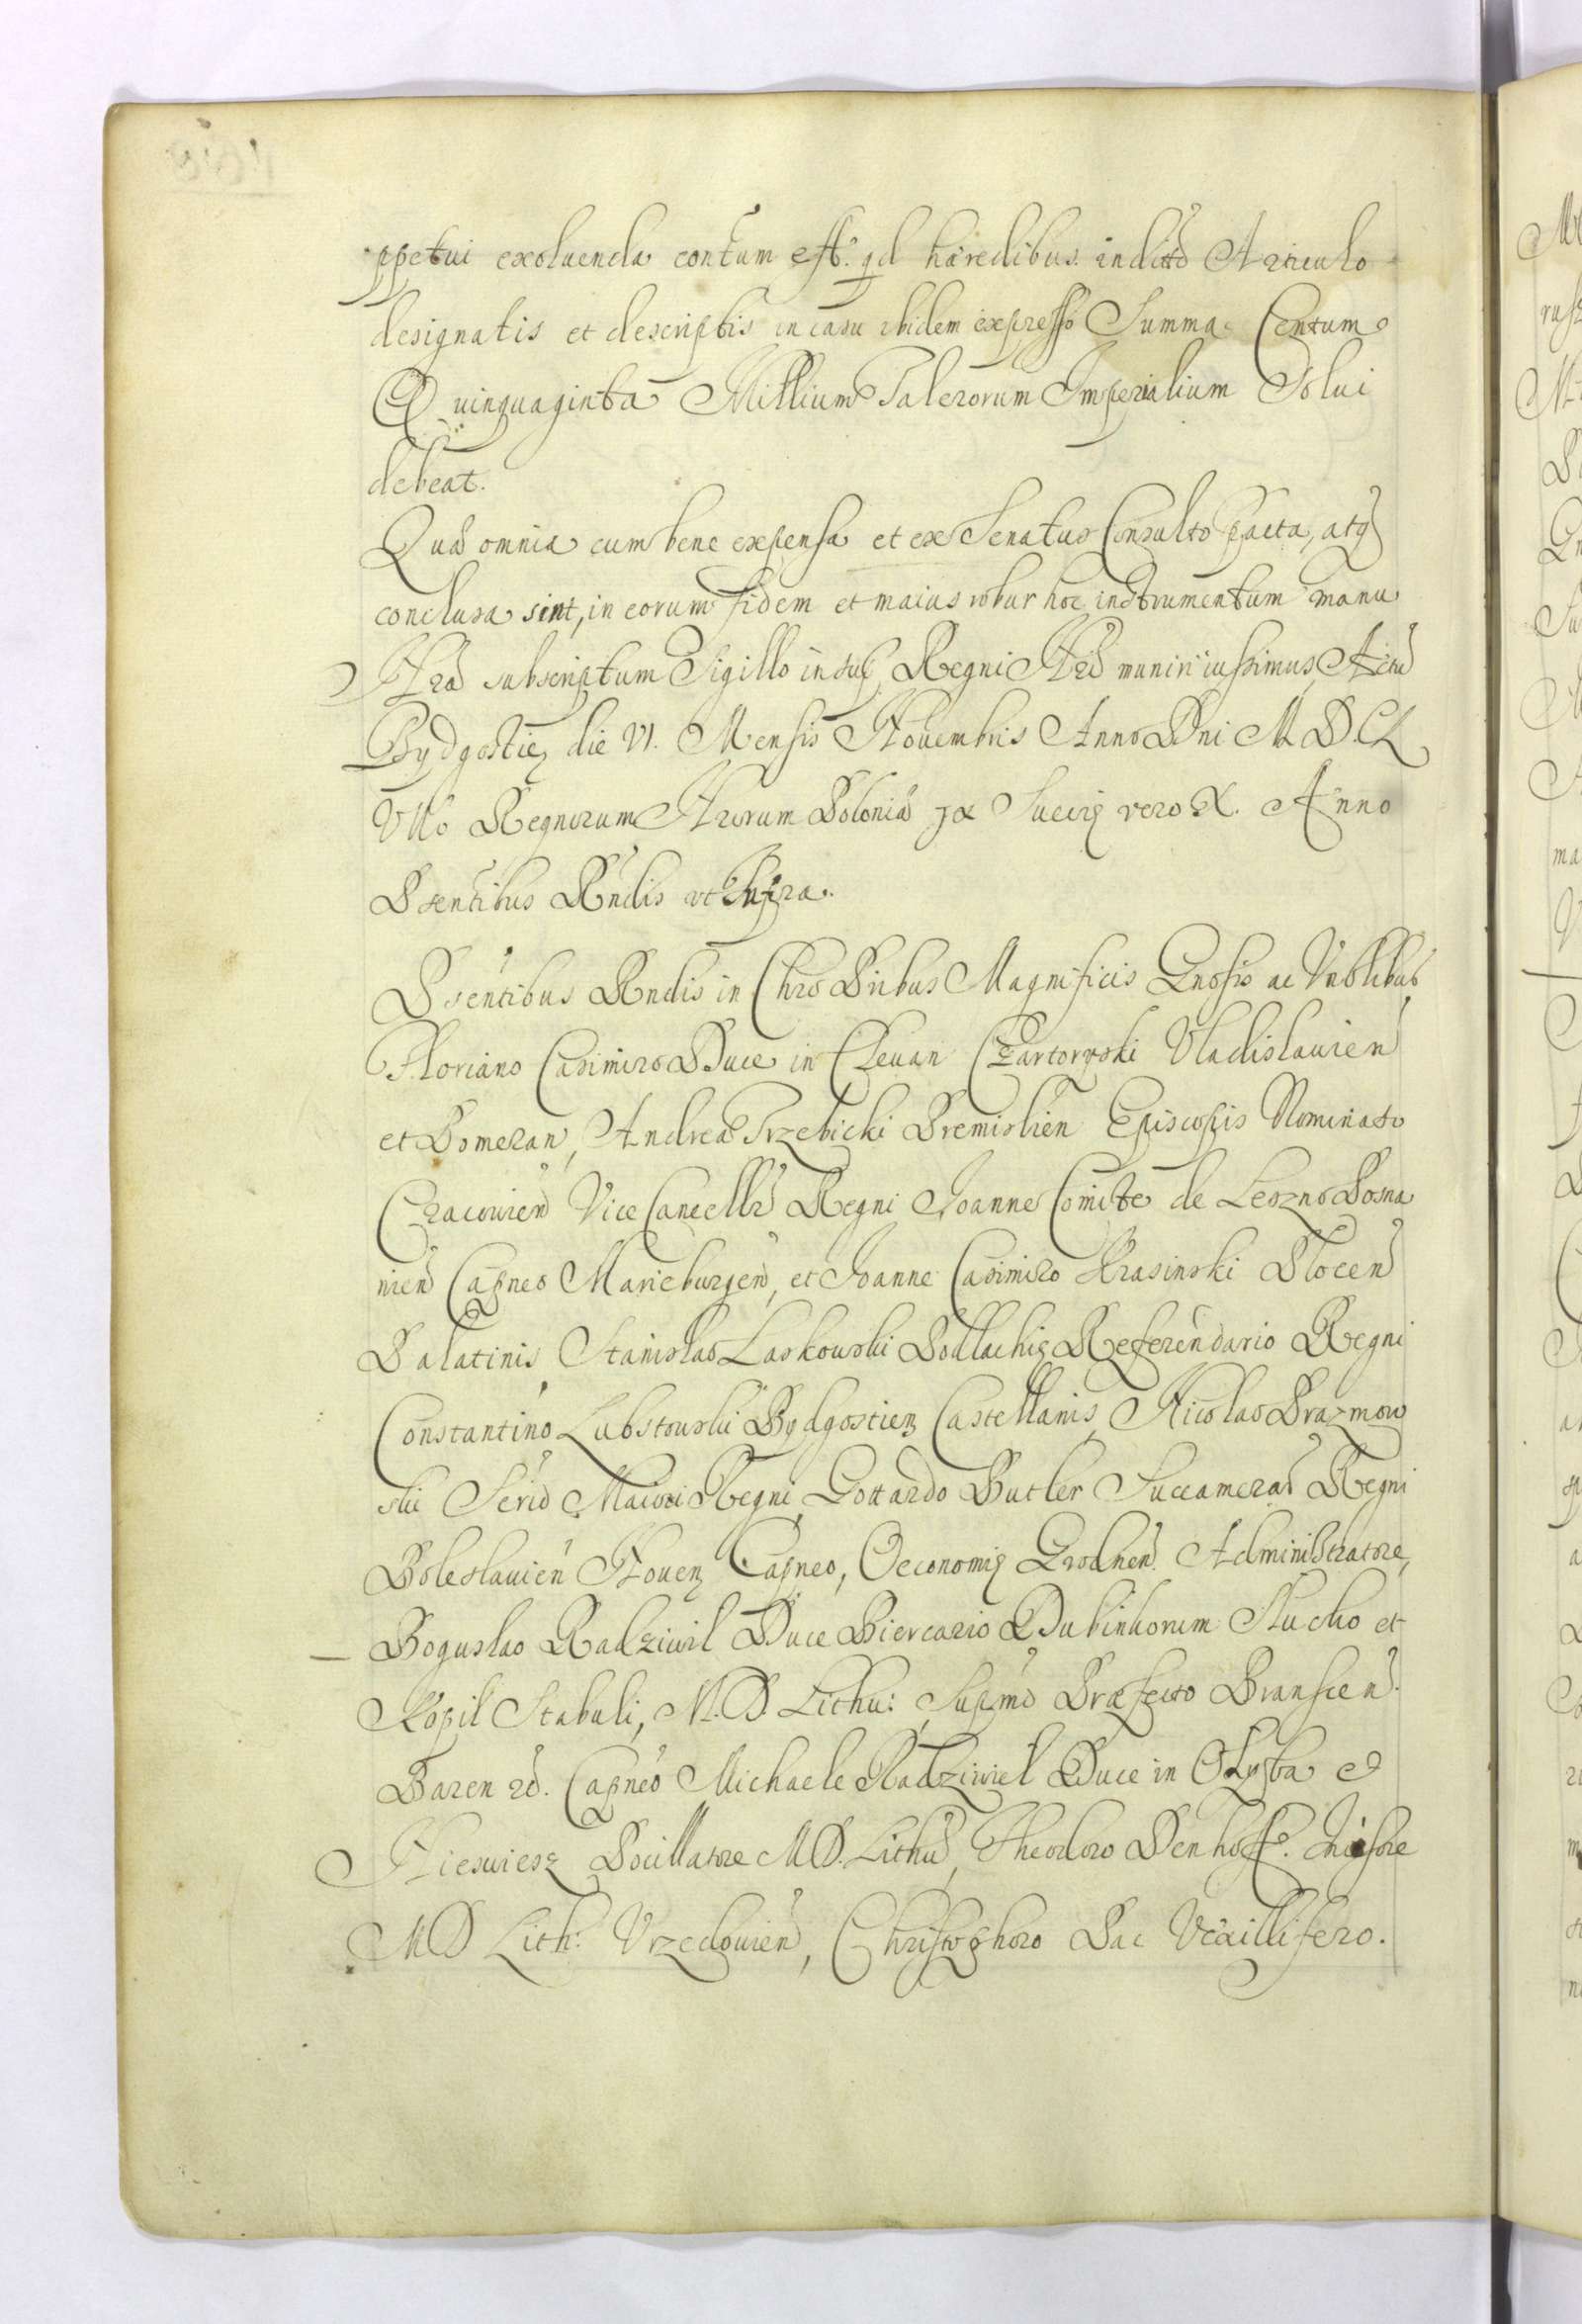 ppetui exoluenda contum est. qd hæredibus in dicto Articulo
designatis et descriptis in casu ibidem expresso Summa Centum
Quinquaginta Millium Talerorum Imperialium Solui
debeat.
Quæ omnia cum bene expensa et ex Senatus Consulto facta, atq
conclusa sint, in eorum fidem et maius robur hoc instrumentum manu
Nra subscriptum Sigillo insup Regni Nri muniri iussimus, Actũ
Bydgostiæ die VI. Mensis Nouembris Anno Dni M.D.CL
VIIo Regnorum Nrorum Poloniæ IX Sueciæ vero X. Anno
Psentibus Rndis vt Supra.
Psentibus Rndis in Chro Pribus Magnificis Gnosis ac Vnblibus
Floriano Casimiro Duce in Cleuan Czartoryski Vladislauien
et Pomeran, Andrea Trzebicki Premislien Episcopis Nominato
Cracouien Vice Cancellr Regni Joanne Comite de Leszno Posna
nien Capneo Marieburgen, et Joanne Casimiro Krasinski Plocen
Palatinis, Stanislao Laskowski Podlachiæ Referendario Regni
Constantino Lubstowski Bydgostien Castellanis, Nicolao Prazmow
ski Secrio Maiori Regni, Gottardo Butler Succamerar Regni
Boleslauien Nouen Capneo, Oeconomiæ Grodnen. Administratore,
Boguslao Radziwil Duce Biercario Dubinkorum Slucko et
Kopil Stabuli, M.D. Lithu: Supmo Præfecto Branscen.
Baren Capneo Michaele Radziwiel Duce in Olysta et
Nieswiesz Pocillatore M.D. Lithu, Theodoro Denhoff. Incisore
M D Lith: Vrzedouien, Christophoro Pac Vexillifero.